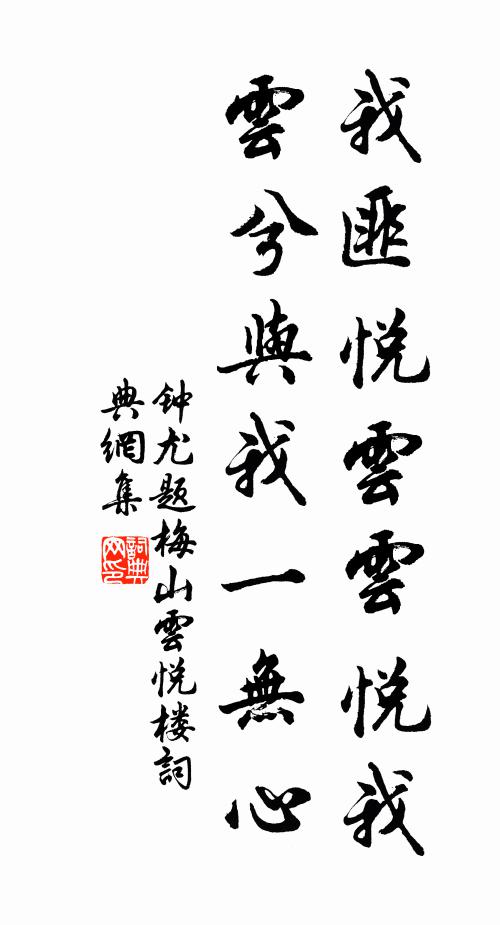 我匪悦雲雲悦我
雲兮與我一無心
钟尤题梅山雲悦楼詞
典網集
詞典网印